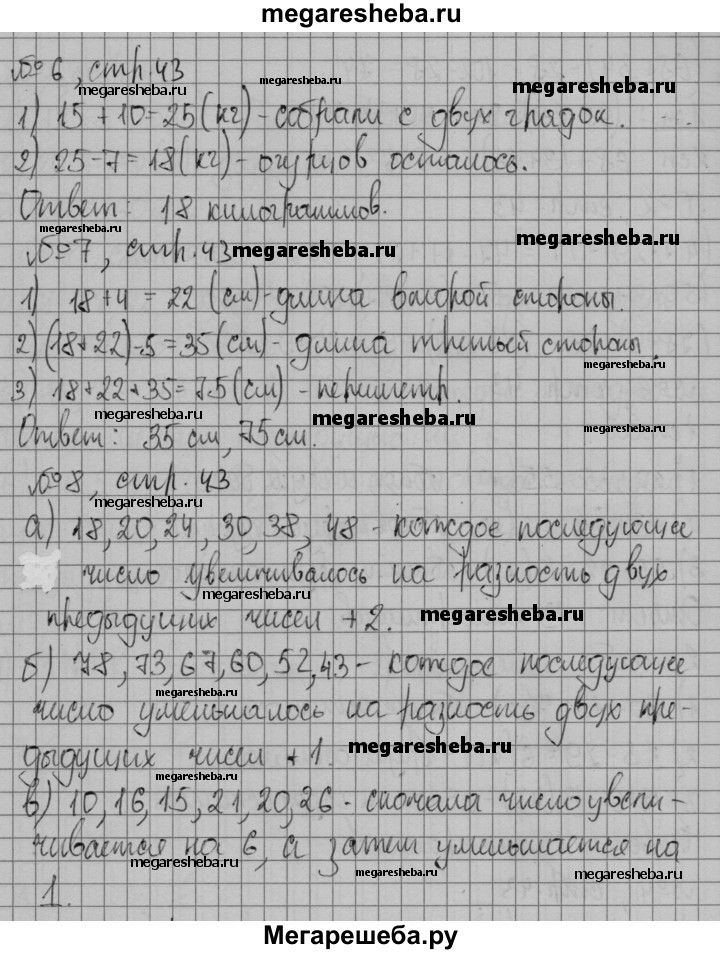 megaresheba.ru
№ 6, стр. 43
megaresheba.ru
megaresheba.ru
megaresheba.ru
1) 15 + 10 = 25 (кг) - собрали с двух грядок.
2) 25 - 7 = 18 (кг) - огурцов осталось.
Ответ: 18 килограммов.
megaresheba.ru
megaresheba.ru
№ 7, стр. 43
megaresheba.ru
1) 18 + 4 = 22 (см) - длина второй стороны.
2) (18 + 22) - 5 = 35 (см) - длина третьей стороны.
megaresheba.ru
3) 18 + 22 + 35 = 75 (см) - периметр.
megaresheba.ru
megaresheba.ru
megaresheba.ru
Ответ: 35 см, 75 см.
№ 8, стр. 43
megaresheba.ru
а) 18, 20, 24, 30, 38, 48 - каждое последующее
число увеличивалось на разность двух
megaresheba.ru
megaresheba.ru
предыдущих чисел + 2.
б) 78, 73, 67, 60, 52, 43 - каждое последующее
megaresheba.ru
megaresheba.ru
число уменьшалось на разность двух пре-
дыдущих чисел + 1.
megaresheba.ru
megaresheba.ru
в) 10, 16, 15, 21, 20, 26 - сначала число увели-
чивается на 6, а затем уменьшается на
megaresheba.ru
megaresheba.ru
1.
Мегарешеба.ру